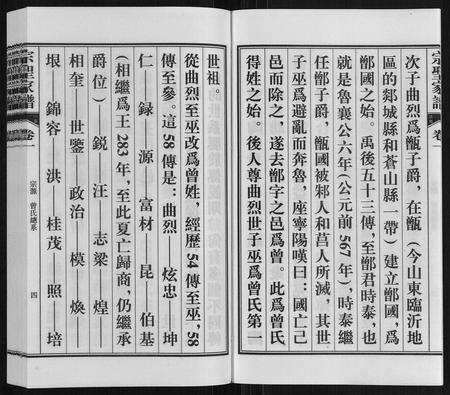 宗聖家譜
卷一
次子曲烈爲甑子爵，在甑（今山東臨沂地
區的郯城縣和蒼山縣一帶）建立鄫國，爲
鄫國之始。禹後五十三傳，至鄫君時泰，也
就是魯襄公六年（公元前567年），時泰繼
任鄫子爵，甑國被邾人和莒人所滅，其世
子巫爲避亂而奔魯，座寧陽嘆曰：國亡己
邑而除之，遂去鄫字之邑爲曾。此爲曾氏
得姓之始。後人尊曲烈世子巫爲曾氏第一
世祖。
從曲烈至巫改爲曾姓，經歷54傳至巫，58
傳至參。這58傳是：曲烈——炫忠——坤
仁——録——源——富材——昆——伯基
（相繼爲王283年，至此夏亡歸商，仍繼承
爵位）——鋭——汪——志梁——煌——
相奎——世鑒——政治——模——焕——
垠——錦容——洪——桂茂——照——培
宗聖家譜
卷一
宗源
曾氏總系
四